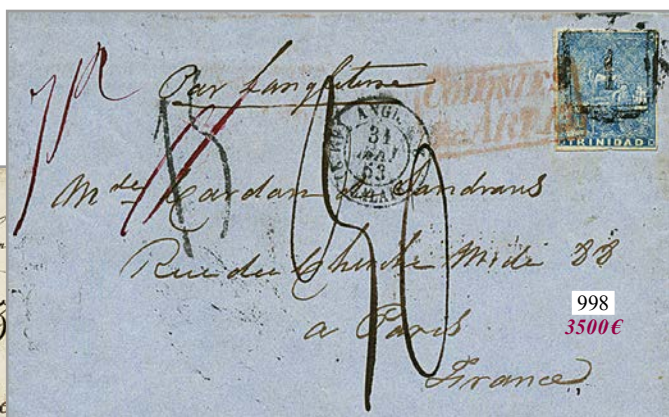 Par Langleterre
COLONIES
ART.
1
TRINIDAD
ANGL.
31
MAI
53
CALAIS
Mde Cardan de Landraus
Rue du Cherche Midi 88
a Paris
France
998
3500€